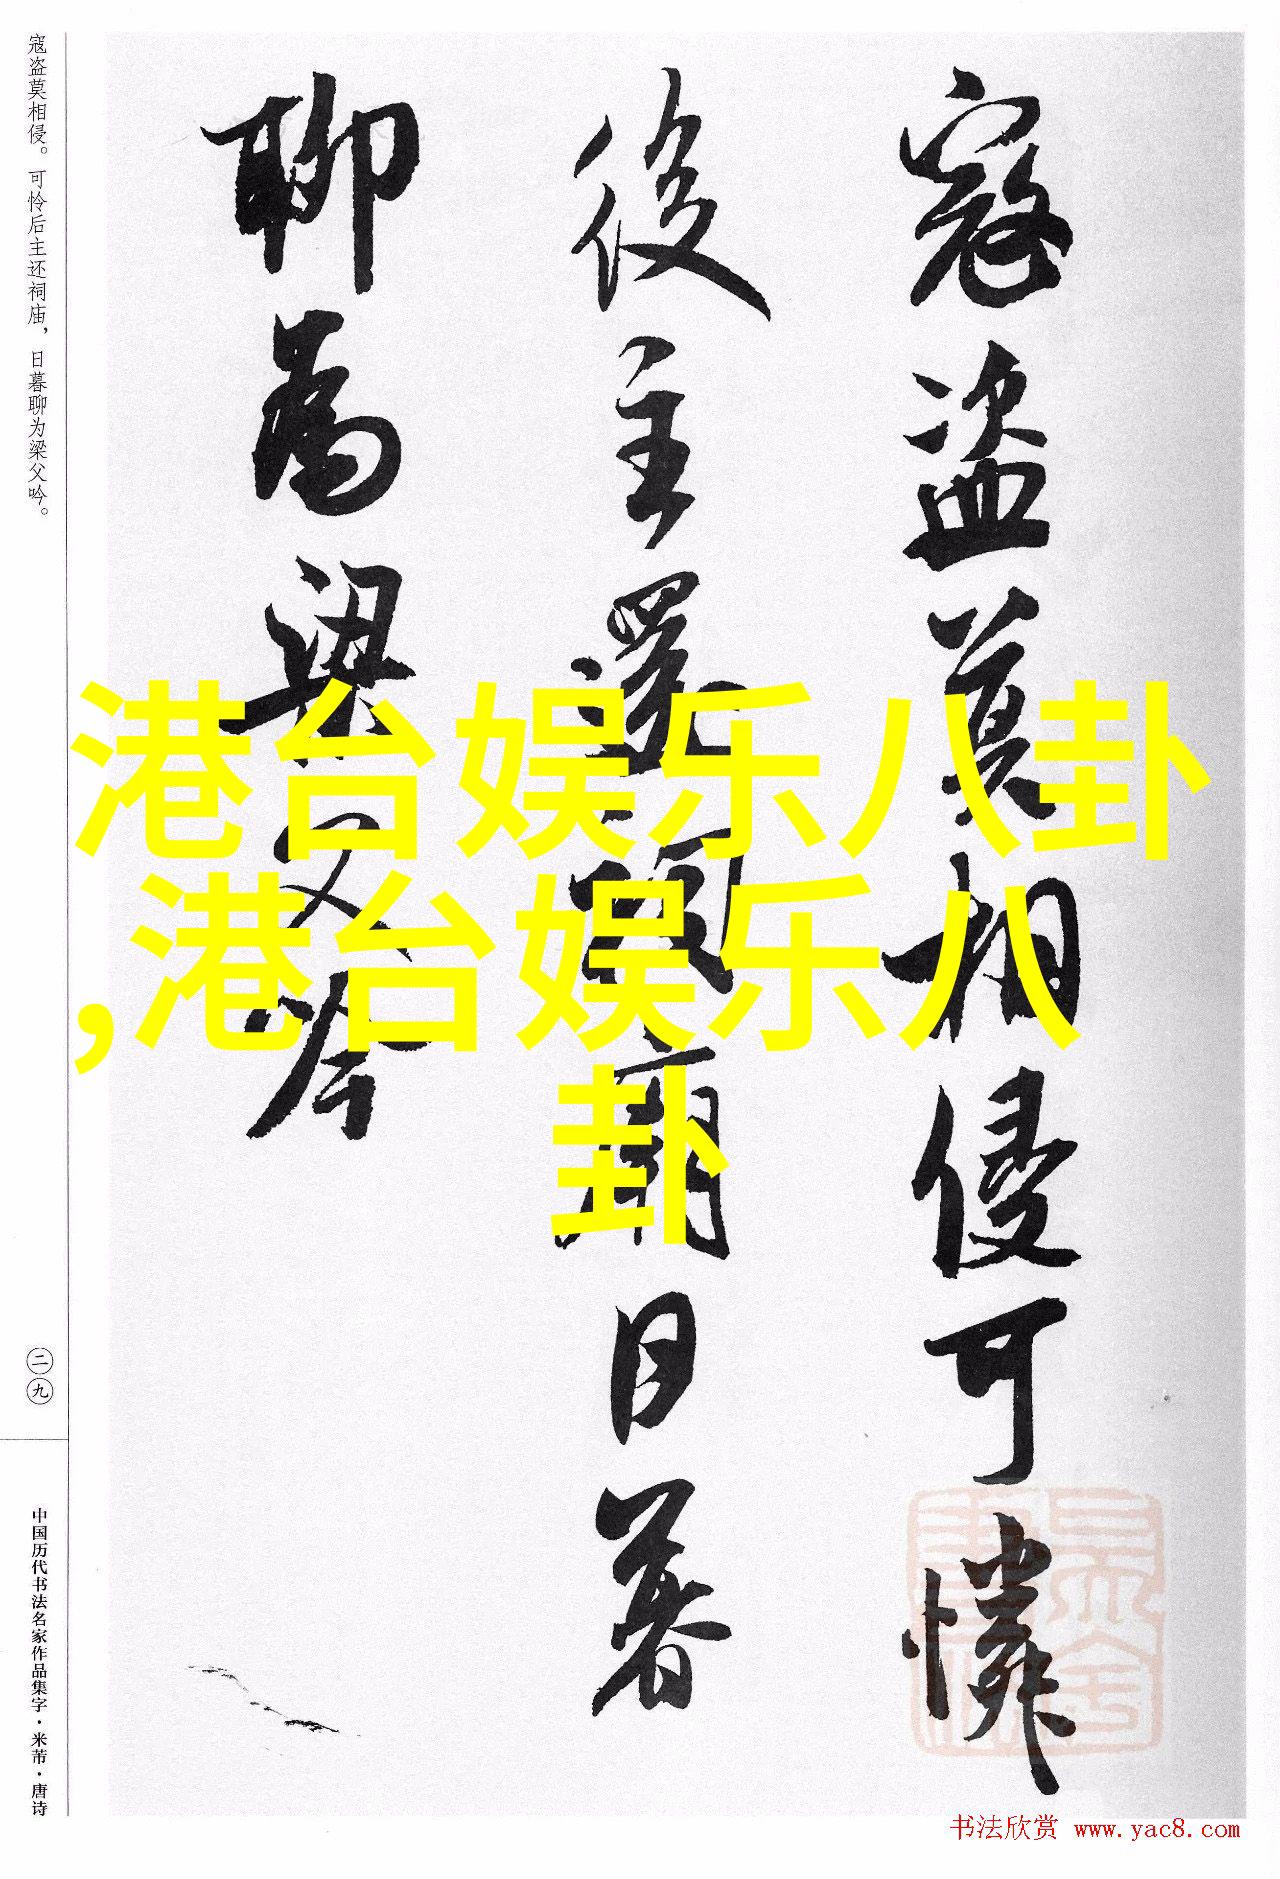 寇盗莫相侵可憐
後主還祠廟日暮
聊為梁父吟
港台娱乐八卦
,港台娱乐八
卦
寇盗莫相侵。可怜后主还祠庙，日暮聊为梁父吟。
二九
中国历代书法名家作品集字·米芾·唐诗
书法欣赏 www.yac8.com